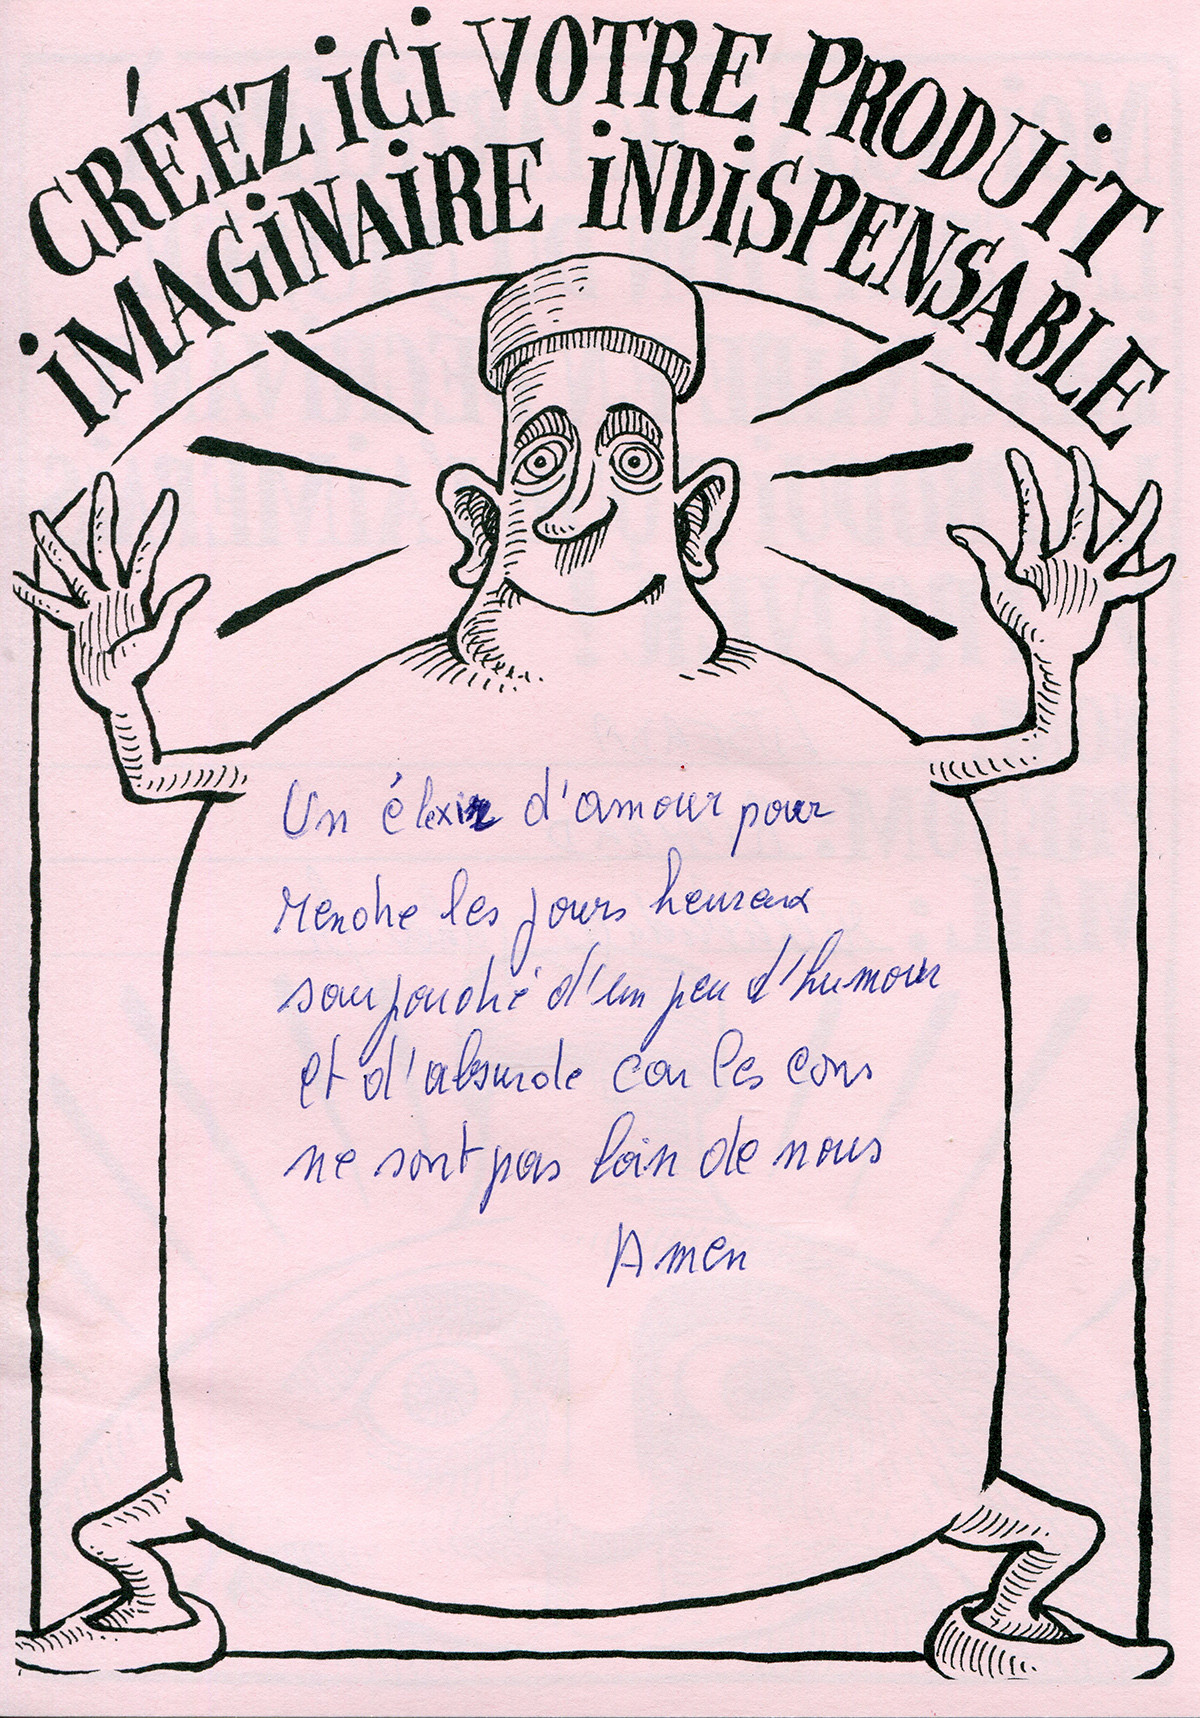 CRÉEZ iCi VOTRE PRODUiT
iMAGiNAiRE iNDiSPENSABLE
Un élexir d'amour pour
rendre les jours heureux
saupoudré d'un peu d'humour
et d'absurde car les cons
ne sont pas loin de nous
Amen